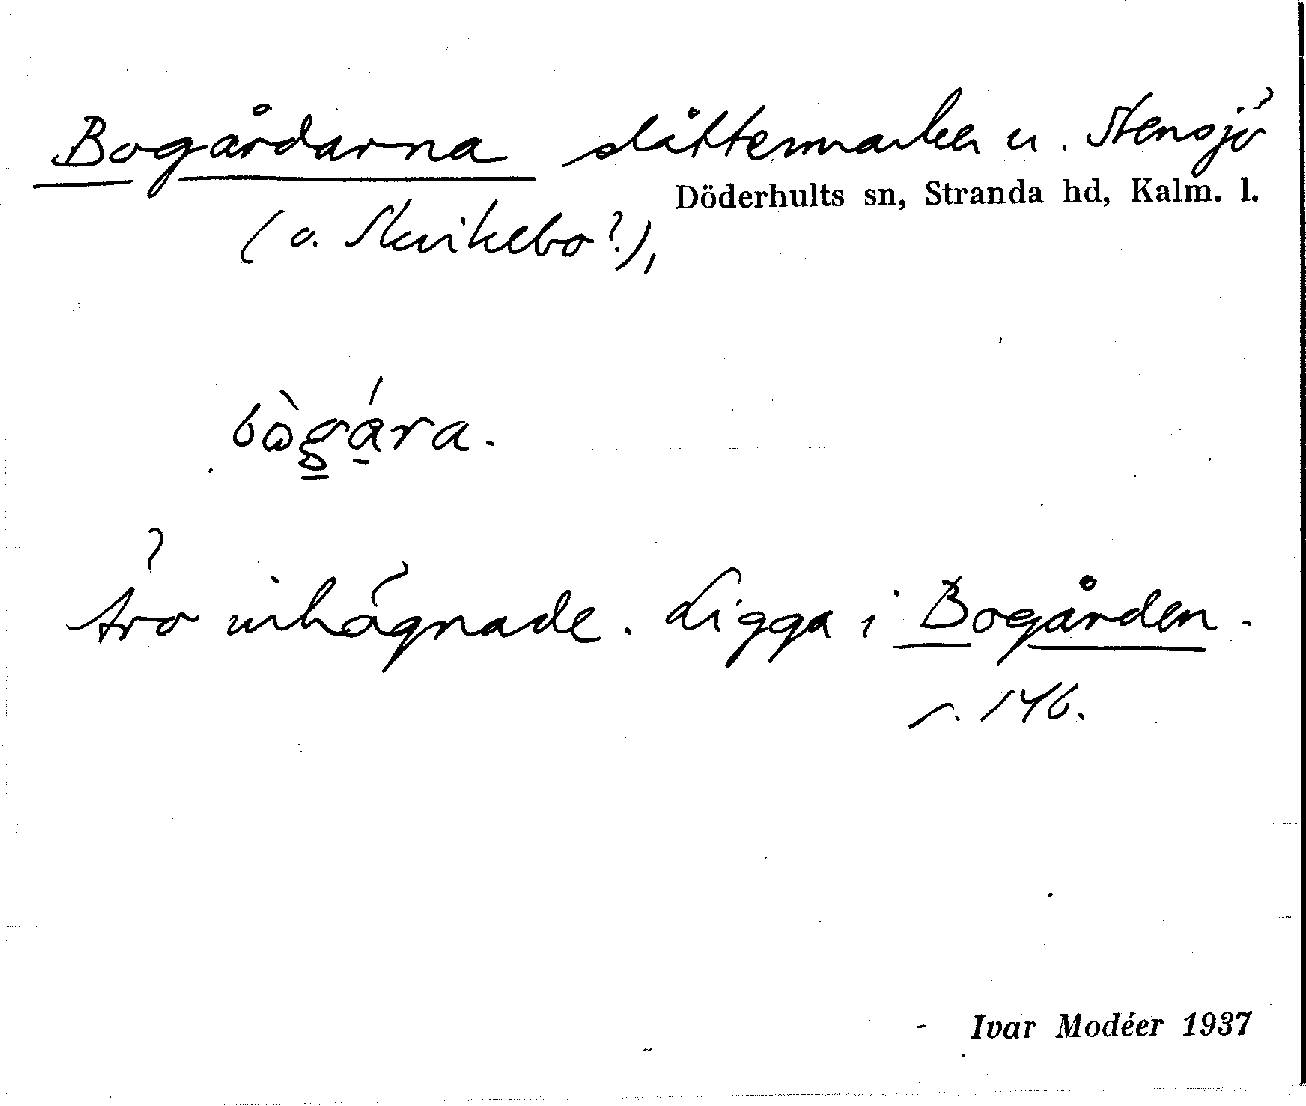 Bogårdarna slåttermarker u. Stensjö
Döderhults sn, Stranda hd, Kalm. l.
(o. Skvikebo?),
bògára.
två inhägnade. Ligga i Bogården.
s. 146.
- Ivar Modéer 1937